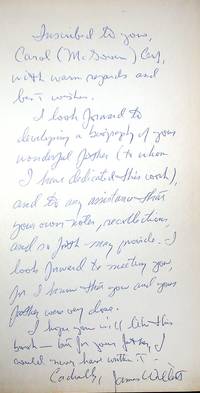 Inscribed to you,
Carol (McGowan) Carl,
with warm regards and
best wishes.
I look forward to
developing a biography of your
wonderful father (to whom
I have dedicated this work),
and to any assistance that
your own notes, recollections,
and so forth may provide. I
look forward to meeting you,
for I know that you and your
father were very close.
I hope you will like this
book — but for your father, I
would never have written it —
Cordially, James